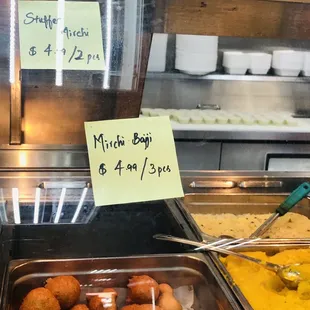 Stuffer
Mirchi
$ 4.99/2 pcs
Mirchi Bajji
$ 4.99/3pcs